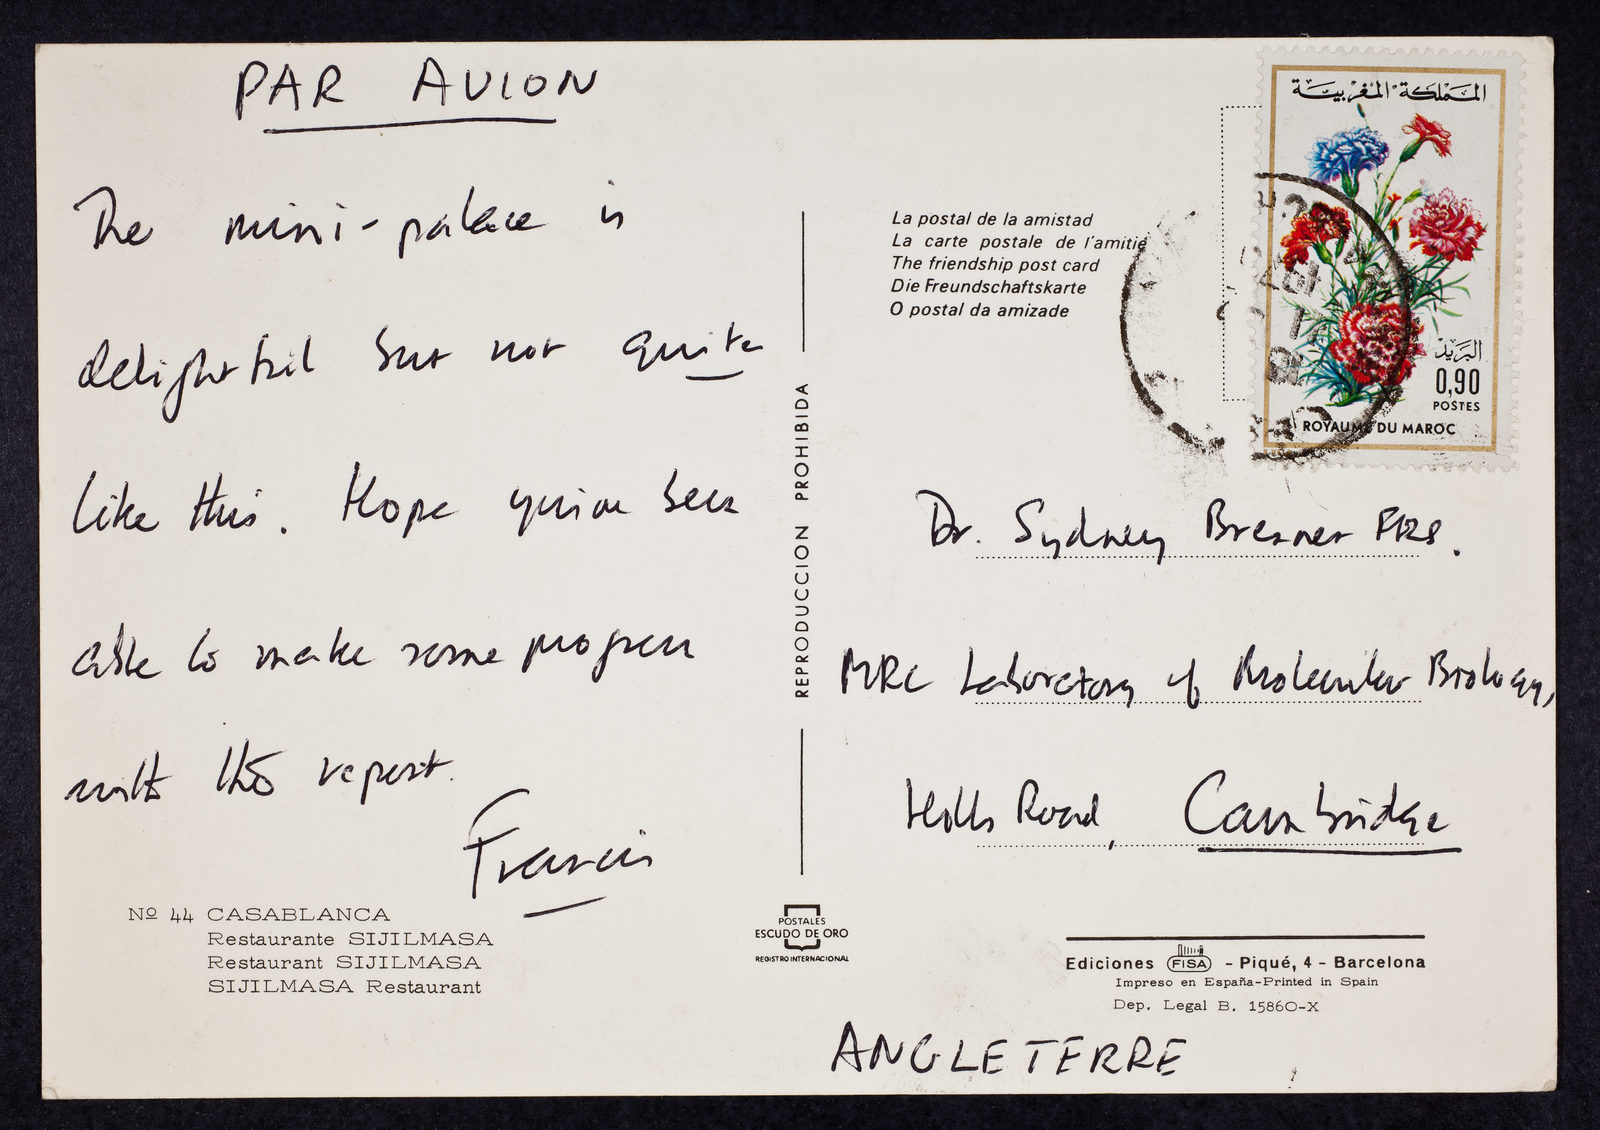 PAR AVION
The mini-palace is
delightful but not quite
like this. Hope you've been
able to make some progress
with the report.
Francis
Nº 44 CASABLANCA
Restaurante SIJILMASA
Restaurant SIJILMASA
SIJILMASA Restaurant
REPRODUCCION PROHIBIDA
POSTALES
ESCUDO DE ORO
REGISTRO INTERNACIONAL
La postal de la amistad
La carte postale de l'amitié
The friendship post card
Die Freundschaftskarte
O postal da amizade
المملكة المغربية
البريد
0,90
POSTES
ROYAUME DU MAROC
Dr. Sydney Brenner FRS.
MRC Laboratory of Molecular Biology,
Hills Road, Cambridge
Ediciones FISA - Piqué, 4 - Barcelona
Impreso en España-Printed in Spain
Dep. Legal B. 15860-X
ANGLETERRE